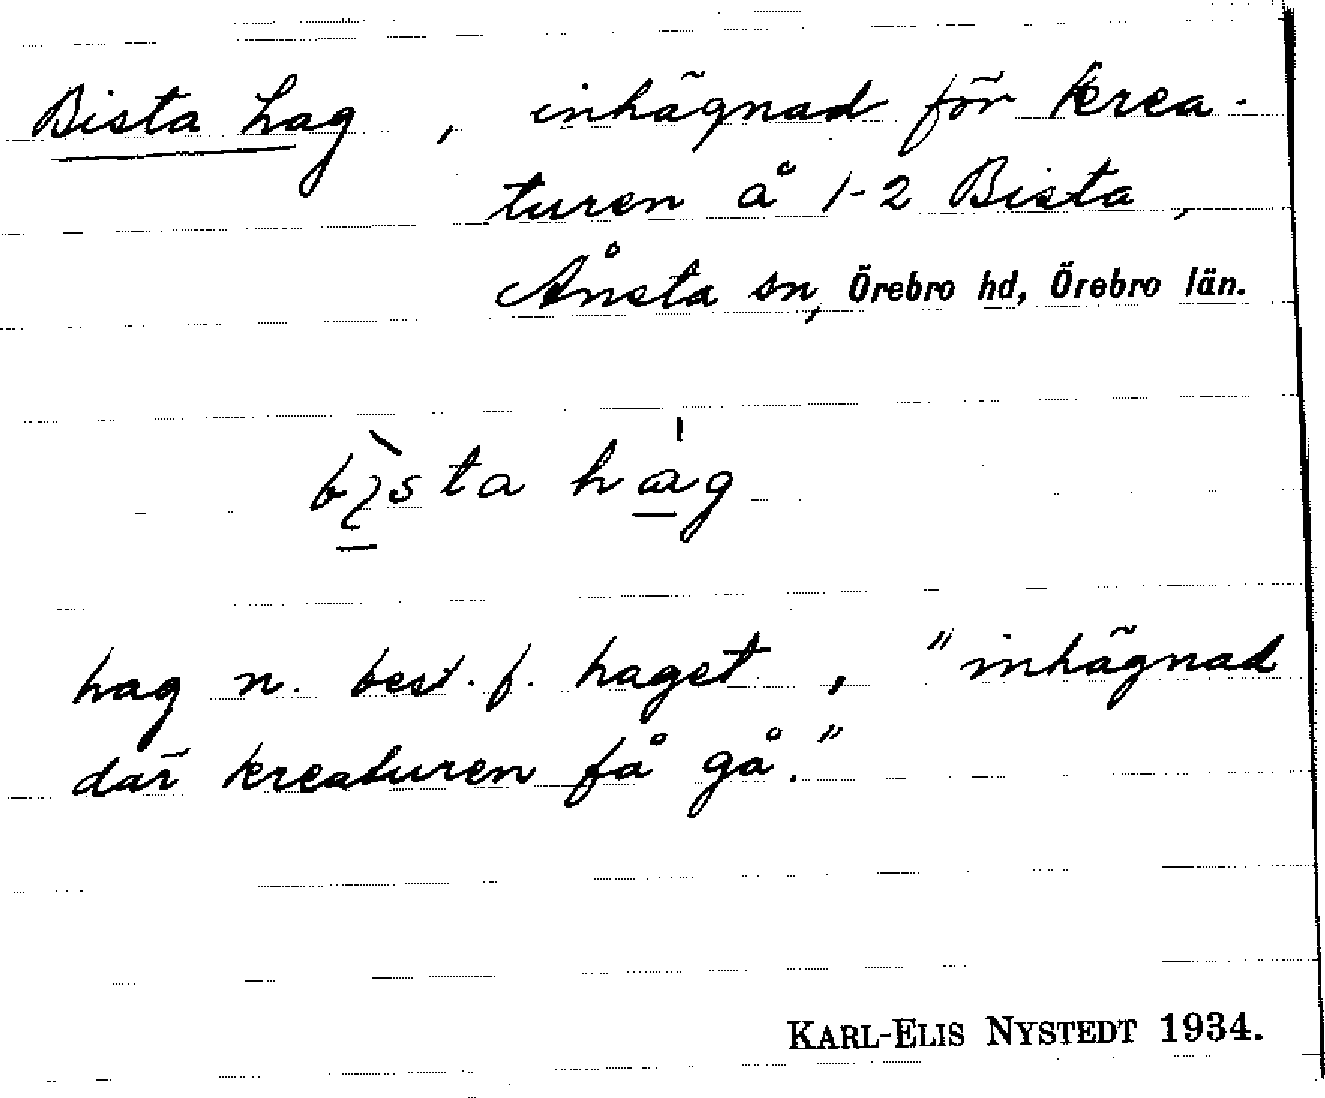 Bista hag, inhägnad för krea-
turen å 1-2 Bista,
Ånsta sn, Örebro hd, Örebro län.
bista hag
hag n. best. f. haget, "inhägnad
där kreaturen få gå."
KARL-ELIS NYSTEDT 1934.